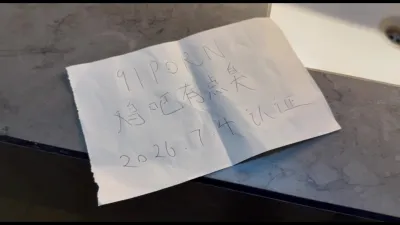 91PORN
鸡吧有点臭
2026.7.4 认证